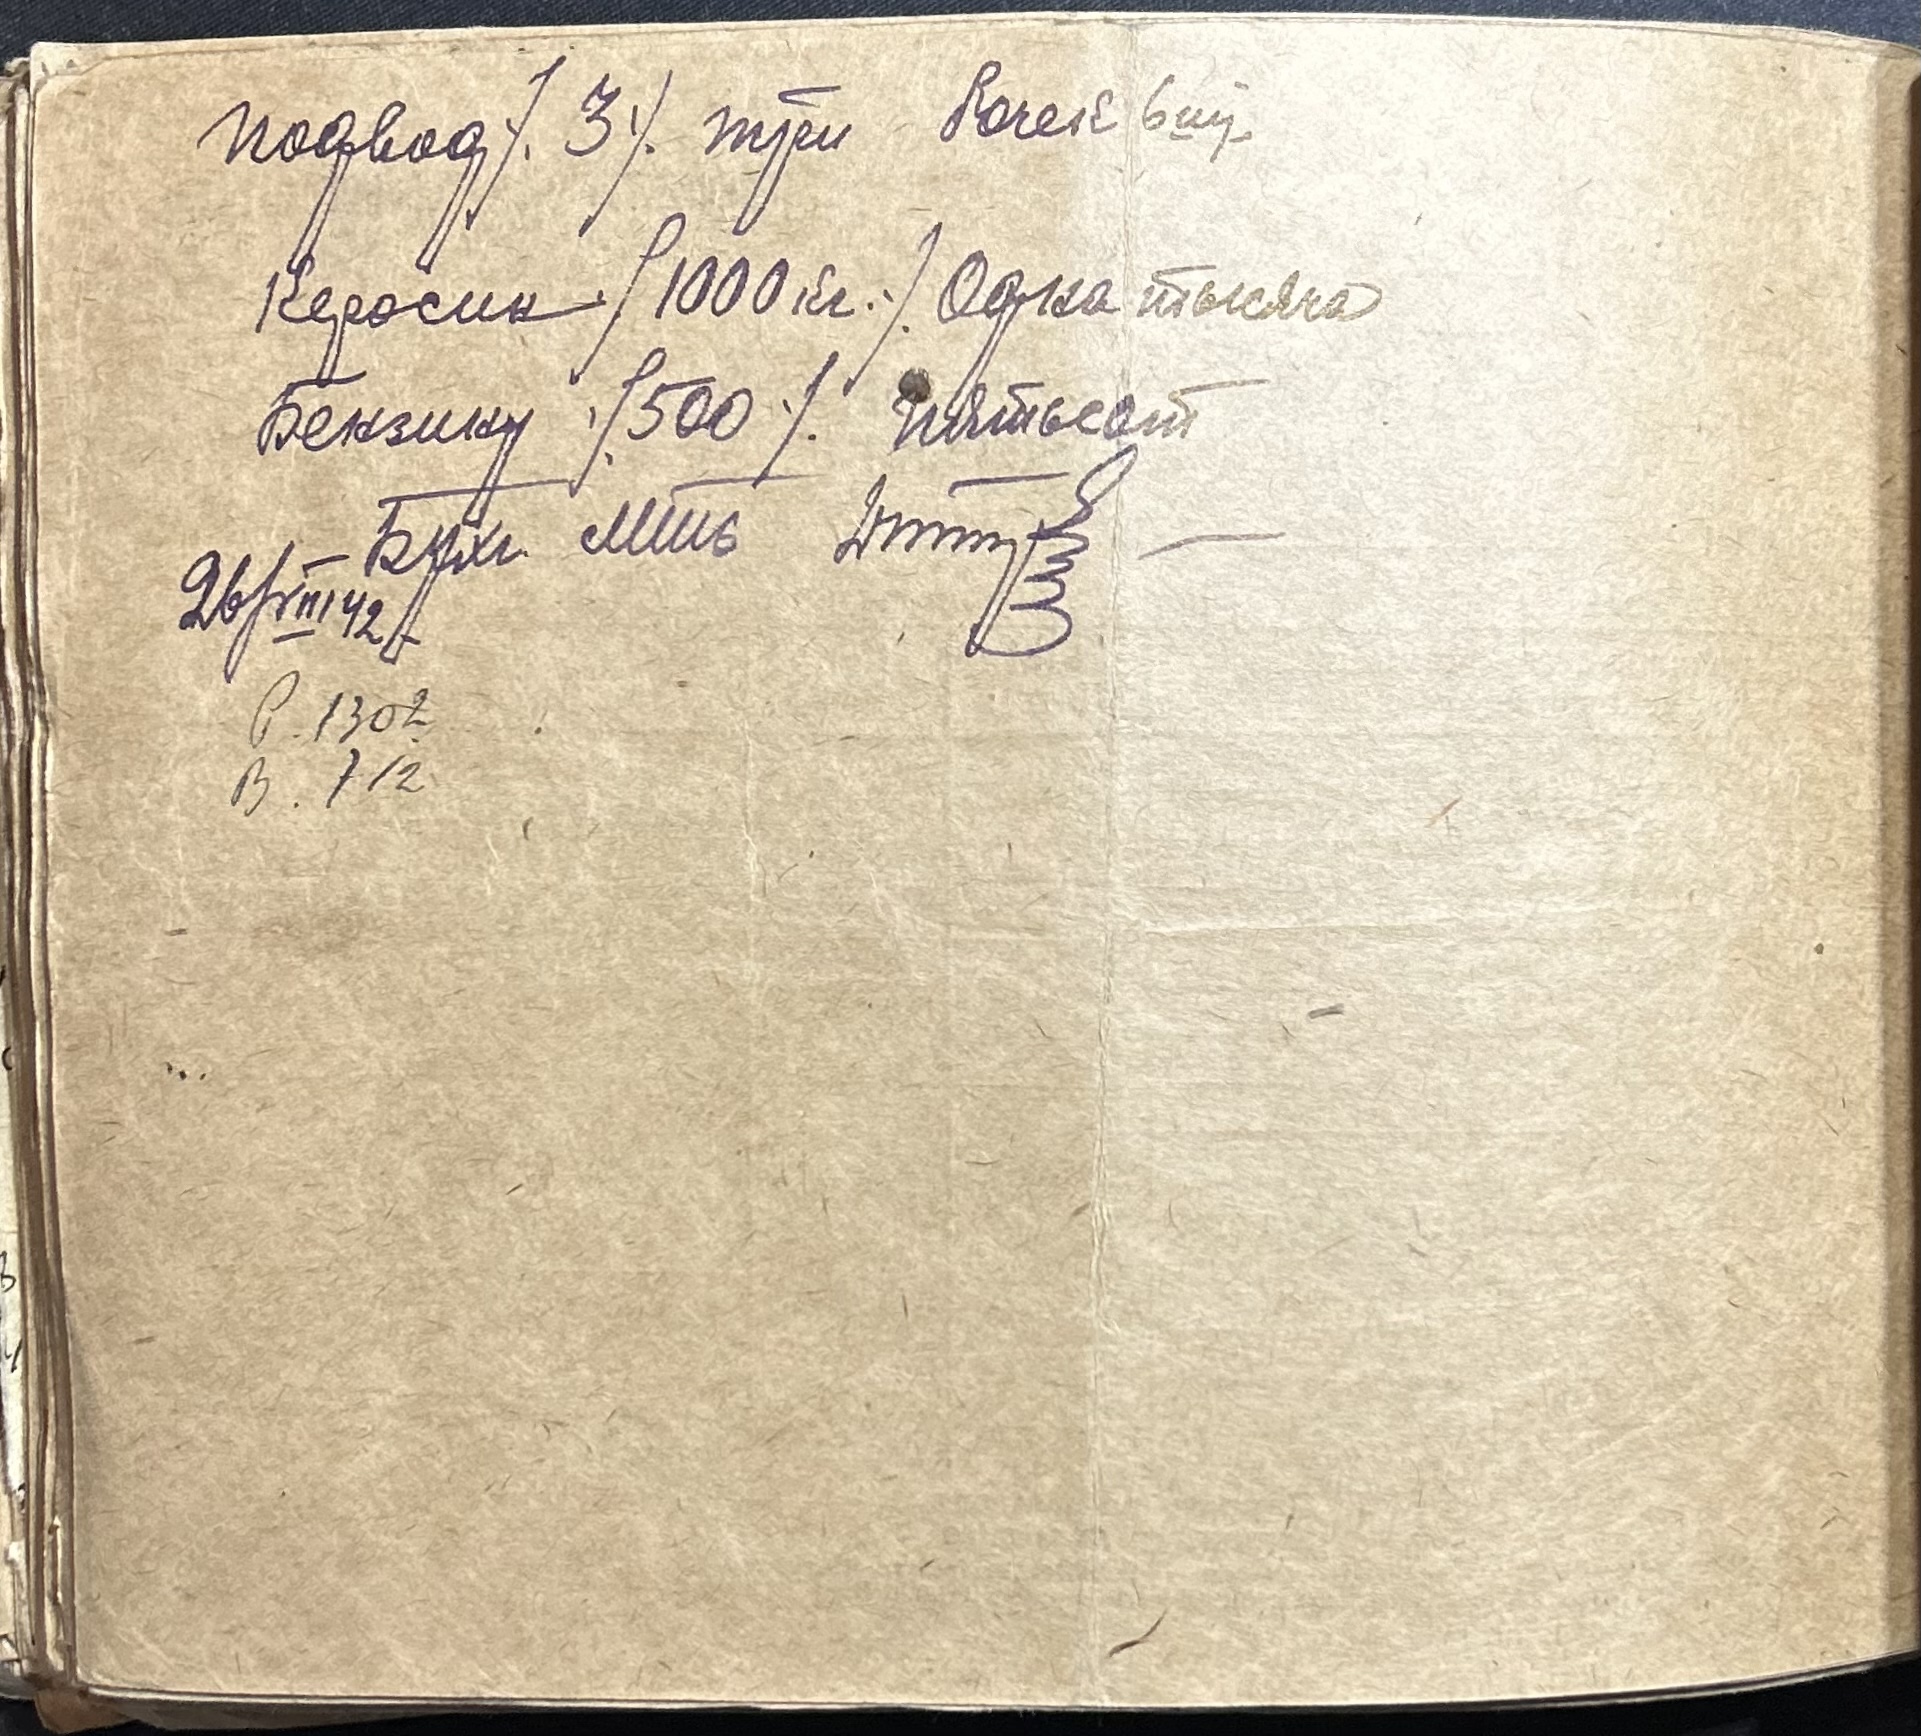 подвод ./. 3 ./. три бочек 6 шт.
Керосин ./. 1000 кг. ./. Одна тысяча
Бензину ./. 500 ./. пятьсот
Бухг. МТМ
26/VIII 42
Р. 1302
В. 712